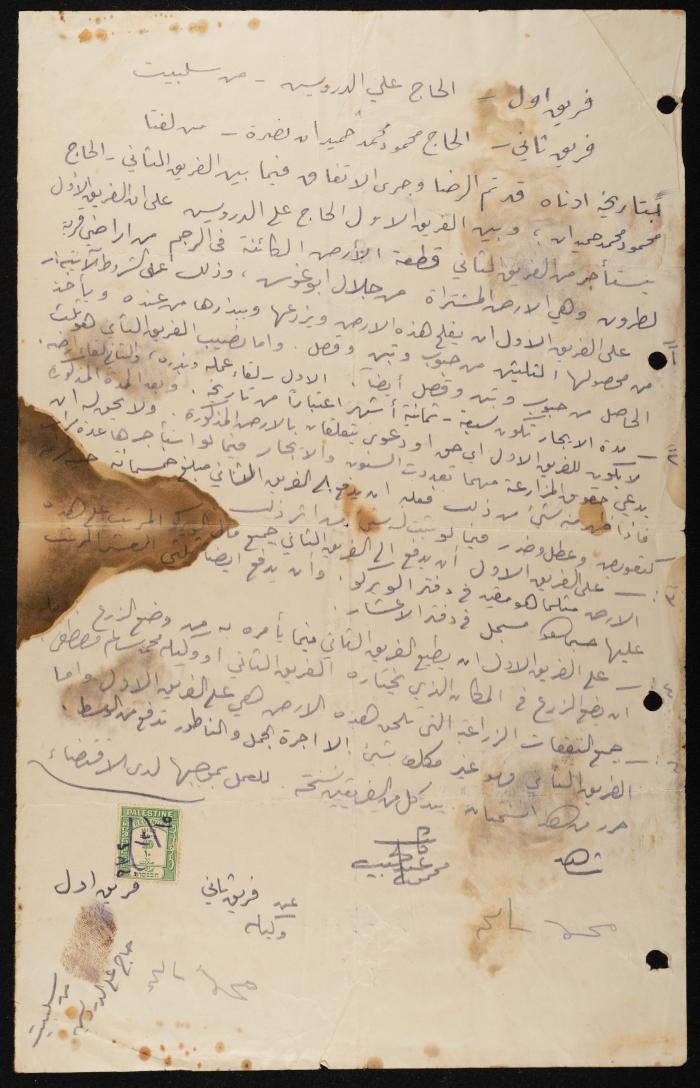 فريق اول - الحاج علي الدرويس - من سلبيت
فريق ثاني - الحاج محمود محمد حميدان نصرة - من لفتا
بتاريخ ادناه قد تم الرضا وجرى الاتفاق فيما بين الفريق الثاني - الحاج
محمود محمد حميدان ، وبين الفريق الاول الحاج علي الدرويس على ان الفريق الاول
يستأجر من الفريق الثاني قطعة الارض الكائنة في الرجم من اراضي قرية
لطرون وهي الارض المشتراة من جلال ابو غوش ، وذلك على الشروط الآتية
١ً - على الفريق الاول ان يفلح هذه الارض ويزرعها وبذارها من عنده ويأخذ
من محصولها الثلثين من حبوب وتبن وقصل . واما نصيب الفريق الثاني هو ثلث
الحاصل من حبوب وتبن وقصل أيضاً . الاول - لقاء عمله وبذره ، والثاني لقاء ارضه .
٢ً - مدة الايجار تكون سبعة - ثمانية أشهر اعتباراً من تاريخه . وبعد المدة المذكورة
لا يكون للفريق الاول اي حق او دعوى يتعلقان بالارض المذكورة . ولا يحق له ان
يدعي حقوق المزارعة مهما تعددت السنون والايجار فيما لو استأجرها عدة مرات
فاذا ظهر منه شيئ من ذلك فعليه ان يدفع الى الفريق الثاني مبلغ خمسماية جنيه
كتعويض وعطل وضرر فيما لو ثبت ان اثر ذلك
٣ - على الفريق الاول أن يدفع الى الفريق الثاني جميع مال الويركو المرتب على هذه
الارض مثلما هو مقيد في دفتر الويركو . وأن يدفع ايضا ثلثي العشر المرتب
عليها حسبما هو مسجل في دفتر الاعشار .
٤ - على الفريق الاول ان يطيع الفريق الثاني فيما يأمره به من وضع الزرع
ان يضع الزرع في المكان الذي يختاره الفريق الثاني او وكيله محمد سالم
- جميع النفقات الزراعية التي تلحق هذه الارض هي على الفريق الاول واما
الفريق الثاني فهو غير مكلف شيئ الا اجرة الجمل والناطور تدفع من الوسط .
حرر من هذا نسختان بيد كل من الفريقين نسخة للعمل بموجبها لدى الاقتضاء
PALESTINE
شاهد
فريق اول
عن فريق ثاني
وكيله
محمد سالم
محمد سالم
حاج علي الدرويس
من سلبيت